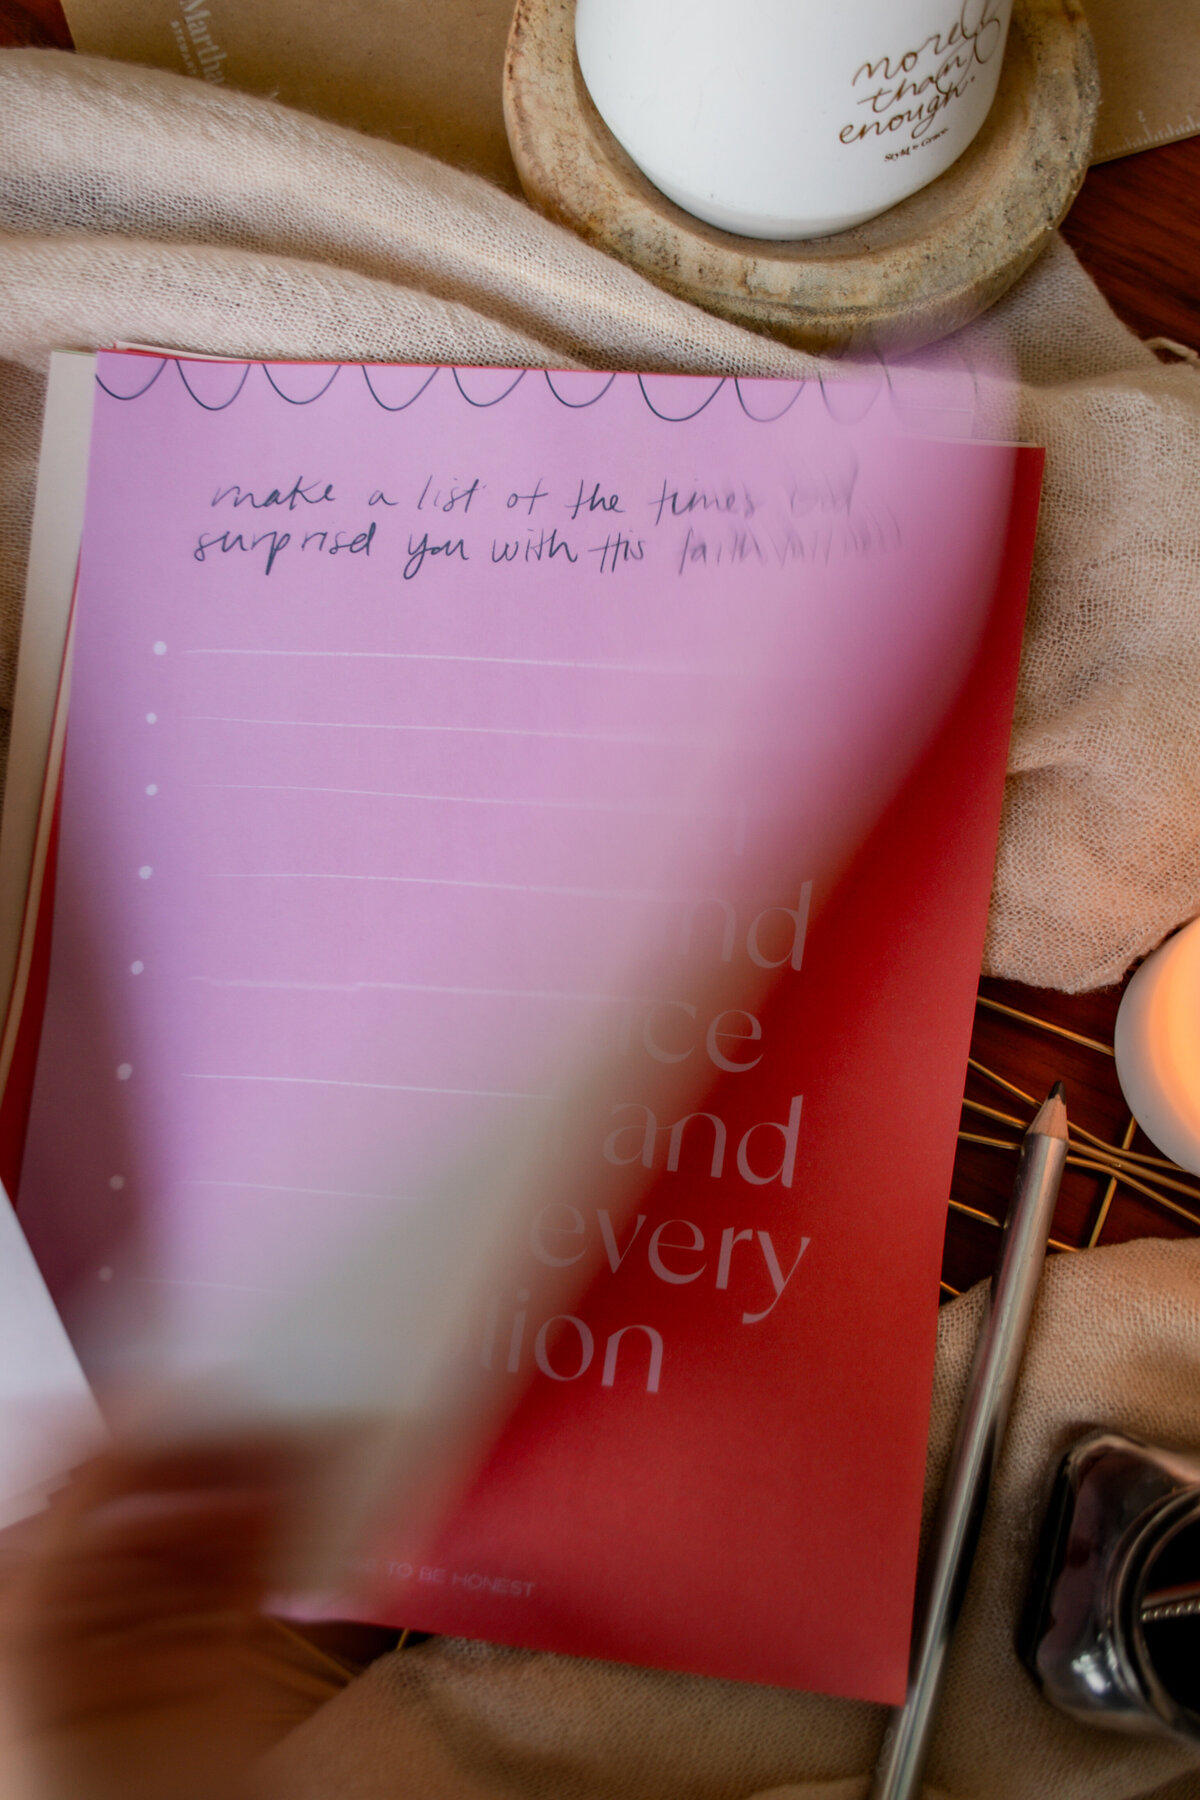 Martha
STEWART
more
than
enough.
Styld by Grace
make a list of the times God
surprised you with His faithfulness
nd
ice
and
every
tion
TO BE HONEST